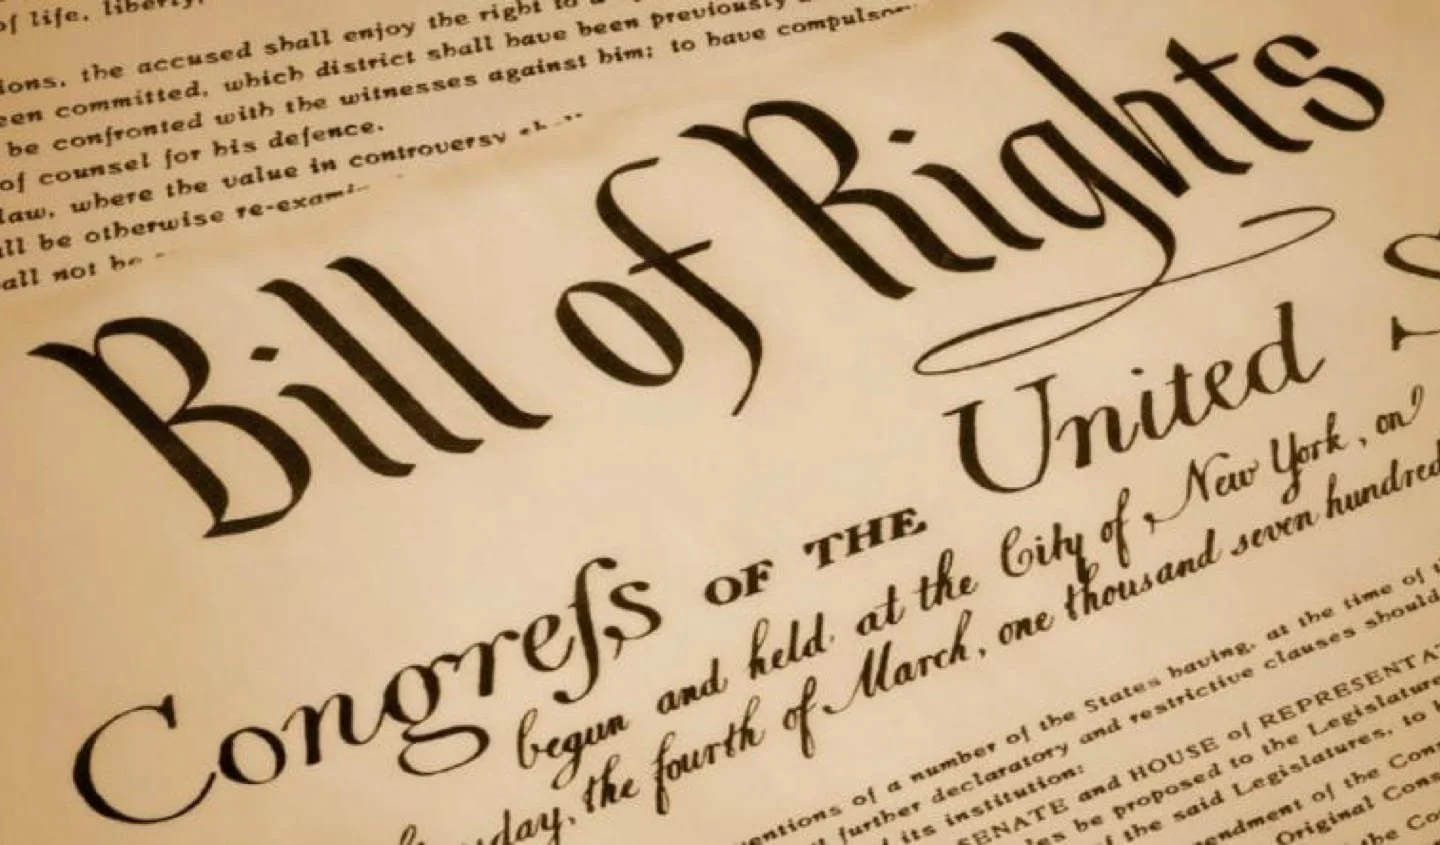 of life, liberty,
ions, the accused shall enjoy the right to a
een committed, which district shall have been previously
be confronted with the witnesses against him; to have compulsory
of counsel for his defence.
law, where the value in controversy
all be otherwise re-exami
all not be
Bill of Rights
Congreſs OF THE United S
begun and held at the City of New York, on
day, the fourth of March, one thousand seven hundred
entions of a number of the States having, at the time of
further declaratory and restrictive clauses should
its institution:
SENATE and HOUSE of REPRESENTAT
es be proposed to the Legislature
the said Legislatures, to
endment of the Con
Original Cons
the Co